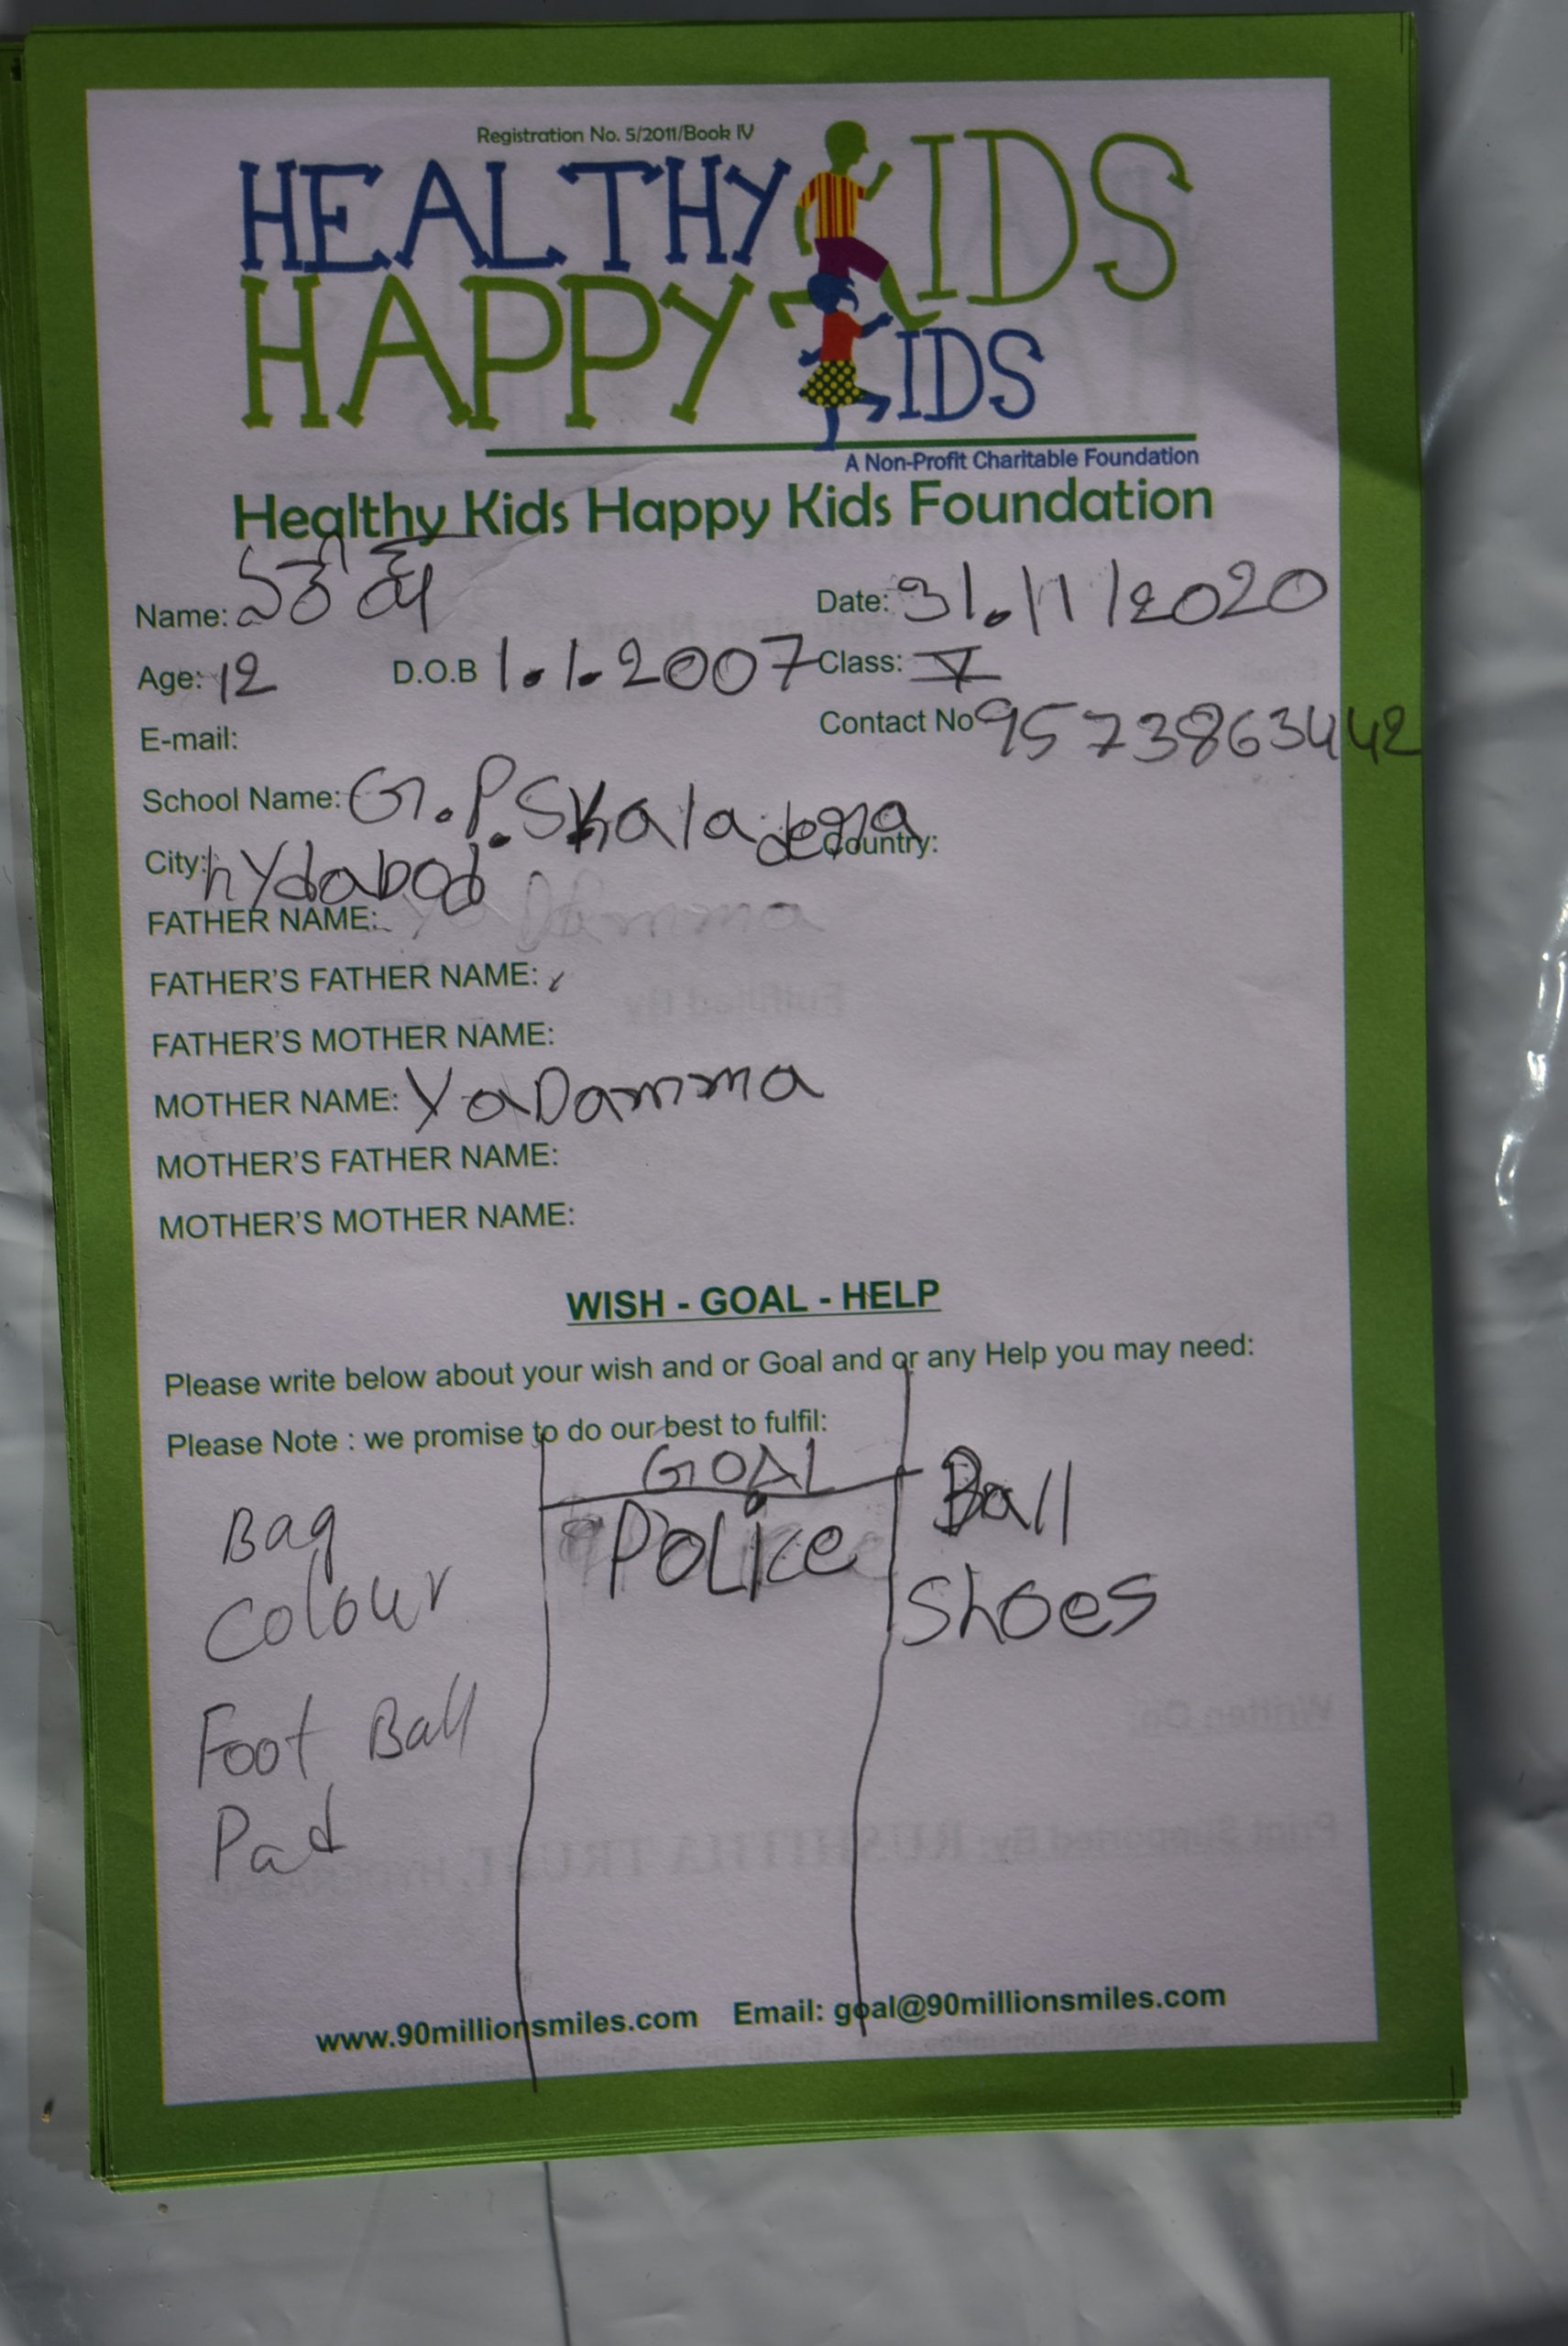 Registration No. 5/2011/Book IV
HEALTHY KIDS
HAPPY KIDS
A Non-Profit Charitable Foundation
Healthy Kids Happy Kids Foundation
Name: Date: 31.11/2020
Age: 12 D.O.B 1.1.2007 Class: V
E-mail: Contact No 95738634442
School Name: G.P.S Kaladera
City: hydabad Country:
FATHER NAME: YaDamma
FATHER'S FATHER NAME:
FATHER'S MOTHER NAME:
MOTHER NAME: YaDamma
MOTHER'S FATHER NAME:
MOTHER'S MOTHER NAME:
WISH - GOAL - HELP
Please write below about your wish and or Goal and or any Help you may need:
Please Note : we promise to do our best to fulfil:
Bag
Colour
Foot Ball
Pad
GOAL
Police
Ball
Shoes
www.90millionsmiles.com Email: goal@90millionsmiles.com